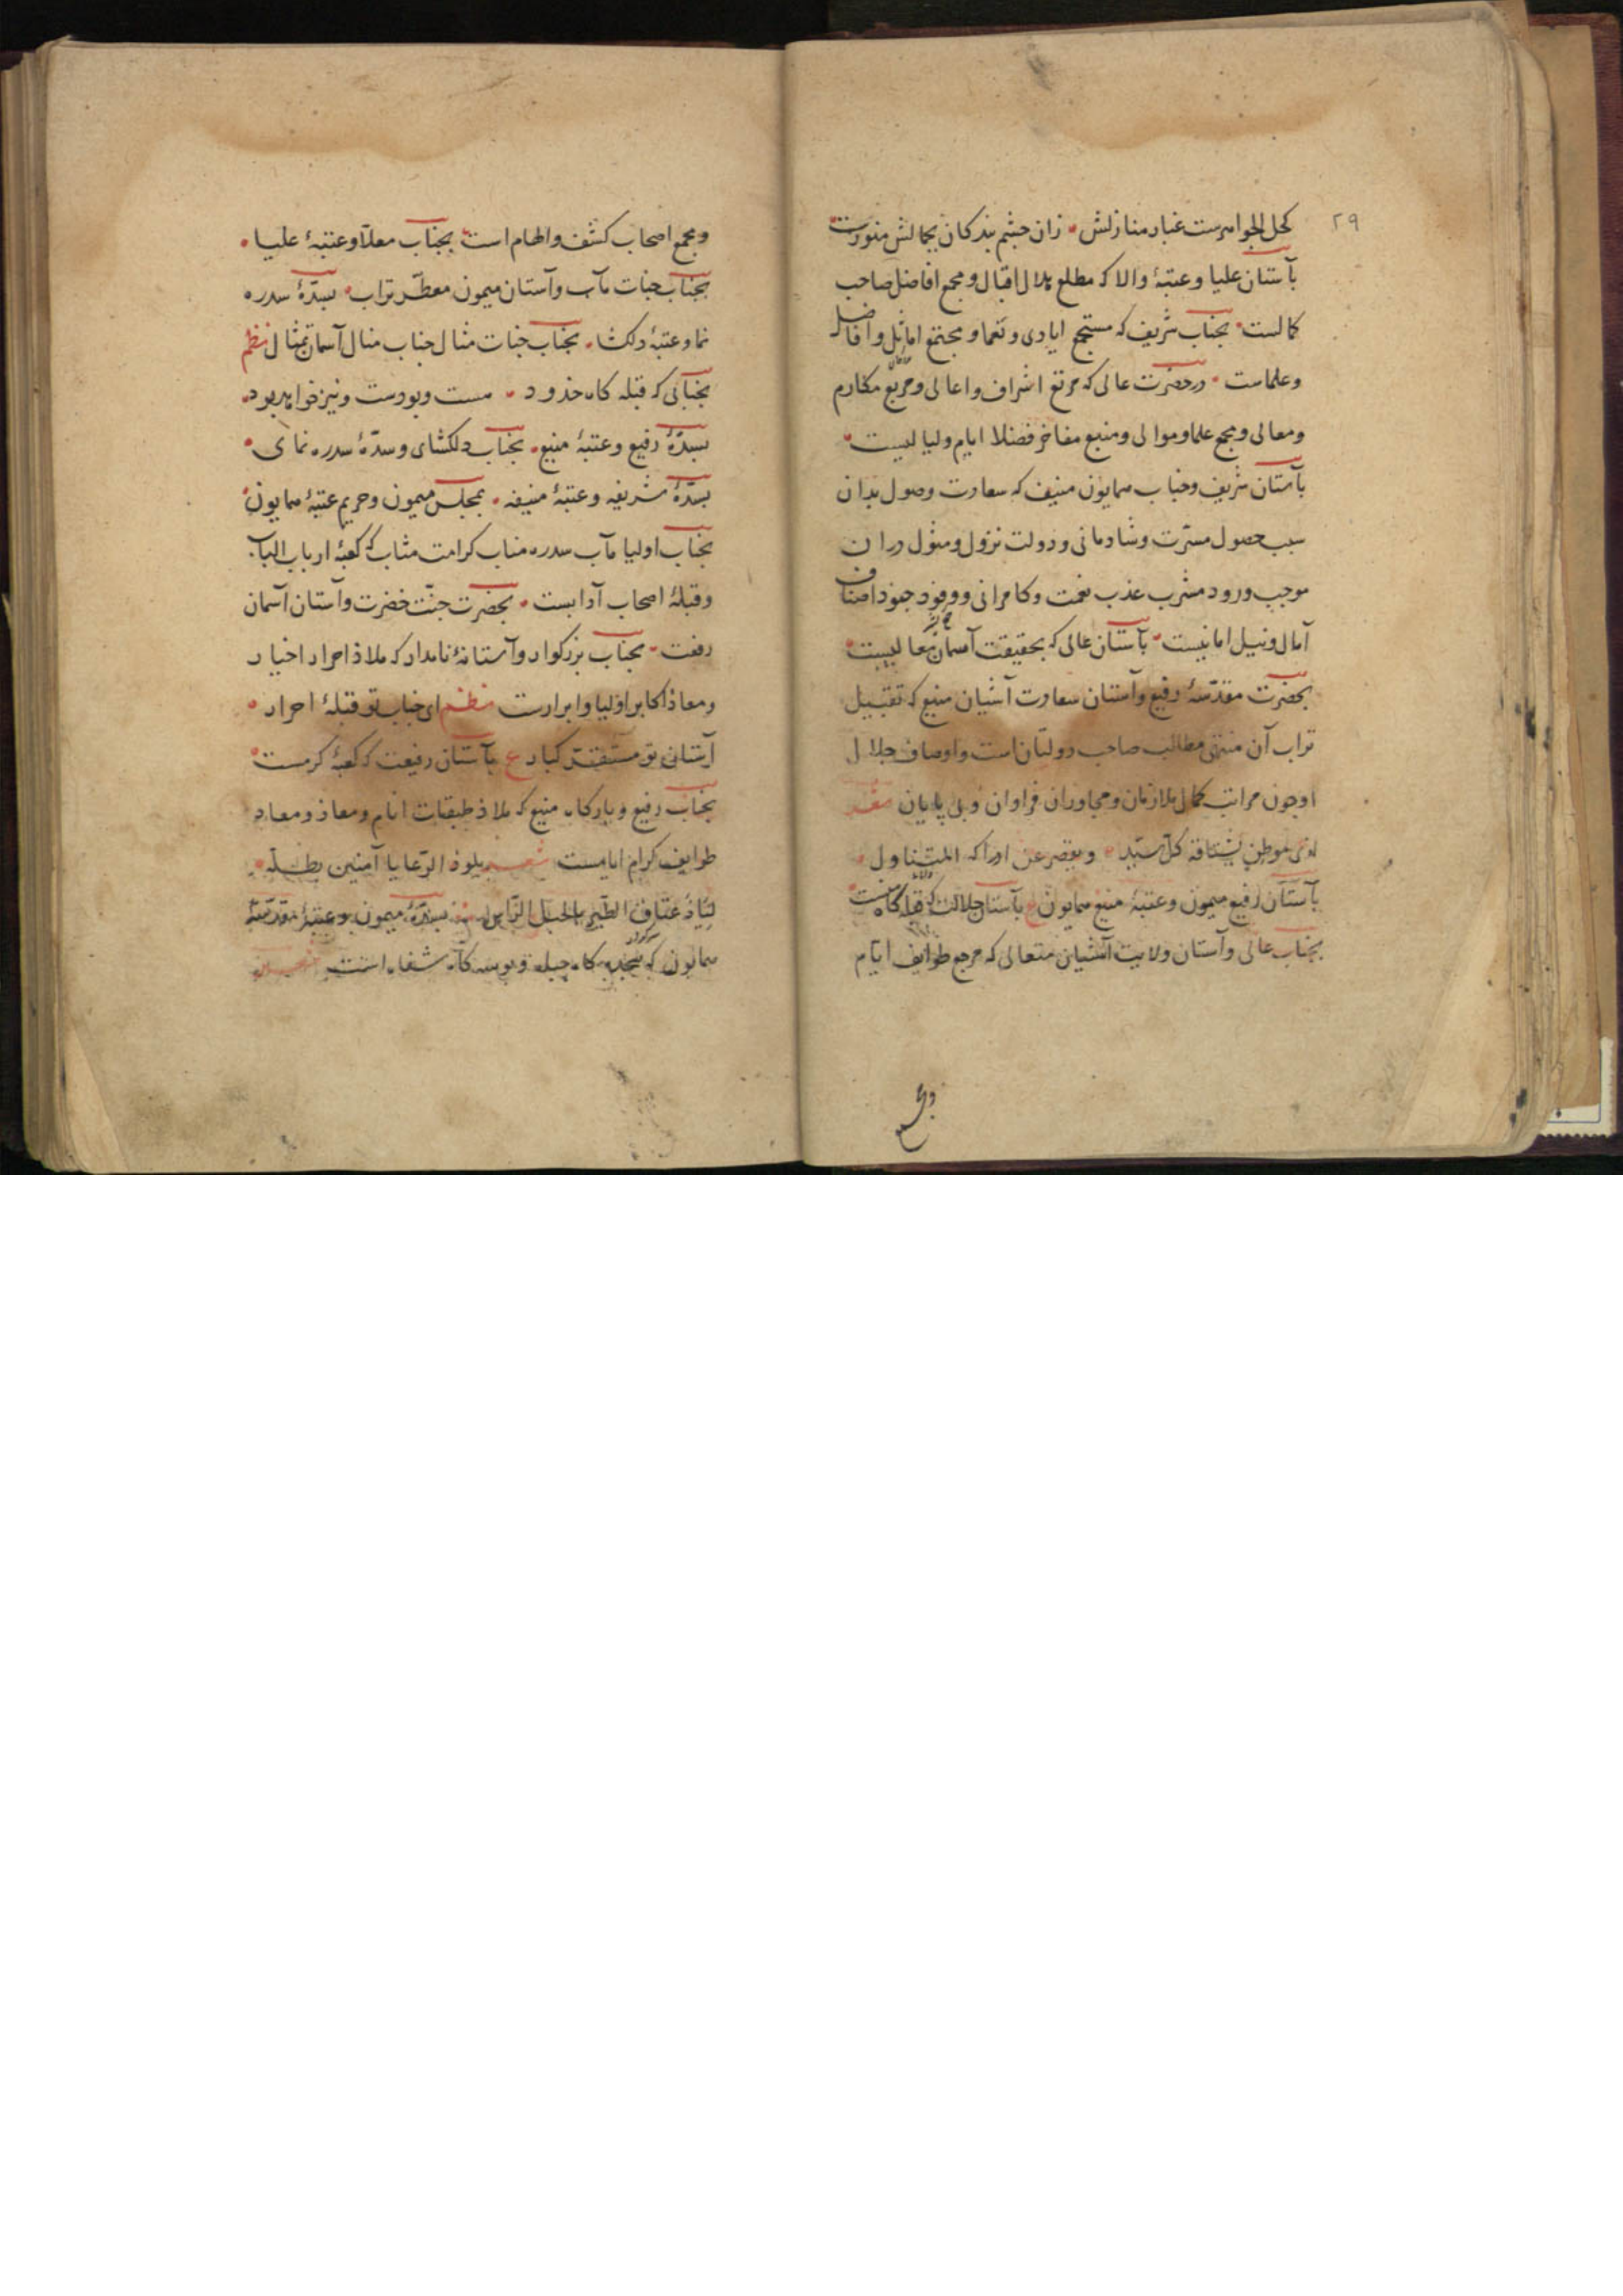 ۲۹
کحل الجواهرست غبار منازلش زان چشم بندکان بجمالش منورست
بآستان علیا و عتبۀ والا که مطلع هلال اقبال و مجمع افاضل صاحب
کمالست بجناب شریف که مستجمع ایادی و نعما و مجتمع اماثل و افاضل
وعلماست در حضرت عالی که مرتع اشراف و اعالی و مربع مکارم
ومعالی و مجمع علما و موالی و منبع مفاخر فضلا ایام ولیالیست
بآستان شریف وجناب همایون منیف که سعادت وصول بدان
سبب حصول مسرّت و شادمانی و دولت نزول و مثول دران
موجب ورود مشرب عذب نعمت وکامرانی و وفود جنود اصناف
آمال ونیل امانیست بآستان عالی که بحقیقت آسمان معالیست
بحضرت مقدّسۀ رفیع وآستان سعادت آشیان منیع که تقبیل
تراب آن منتهی مطالب صاحب دولتان است واوصاف جلال
او چون مراتب کمال ملازمان ومجاوران فراوان و بی پایان
موطن یشتاقه کل سیّد ویقصر عن ادراکه المتناول
بآستان رفیع میمون وعتبۀ منیع همایون ع بآستان جلالت که قبله کاه
بجناب عالی وآستان ولایت آشیان متعالی که مرجع طوایف ایّام
ومجمع
ومجمع اصحاب کشف والهام است بجناب معلّا وعتبۀ علیا
بجناب جنات مآب وآستان میمون معطّر تراب بسدّۀ سدره
نما وعتبۀ دلکشا بجناب جنات مثال جناب منال آسمان تمثال نظم
بجنابی که قبله کاه خذود هست وبودست ونیز خواهد بود
بسدّۀ رفیع وعتبۀ منیع بجناب دلکشای وسدّۀ سدره نمای
بسدّۀ شریفه وعتبۀ منیفه بمجلس میمون وحریم عتبۀ همایون
بجناب اولیا مآب سدره مناب کرامت مثاب که کعبۀ ارباب الباب
وقبلۀ اصحاب آدابست بحضرت جنّت خضرت وآستان آسمان
رفعت بجناب بزرکوار وآستانۀ نامدار که ملاذ احرار اخیار
ومعاذ اکابر اولیا وابرارست نظم ای جناب تو قبلۀ احرار
آستان تو مستقرّ کبار ع بآستان رفیعت که کعبۀ کرمست
بجناب رفیع وبارکاه منیع که ملاذ طبقات انام ومعاذ ومعاد
طوایف کرام ایامست شعر یلوذ الرّعایا آمنین بظلّه
عتاق الطّیر بالجبل بسدّۀ میمون وعتبۀ مقدّسۀ
همایون که سجده کاه جباه وبوسه کاه شفاه است